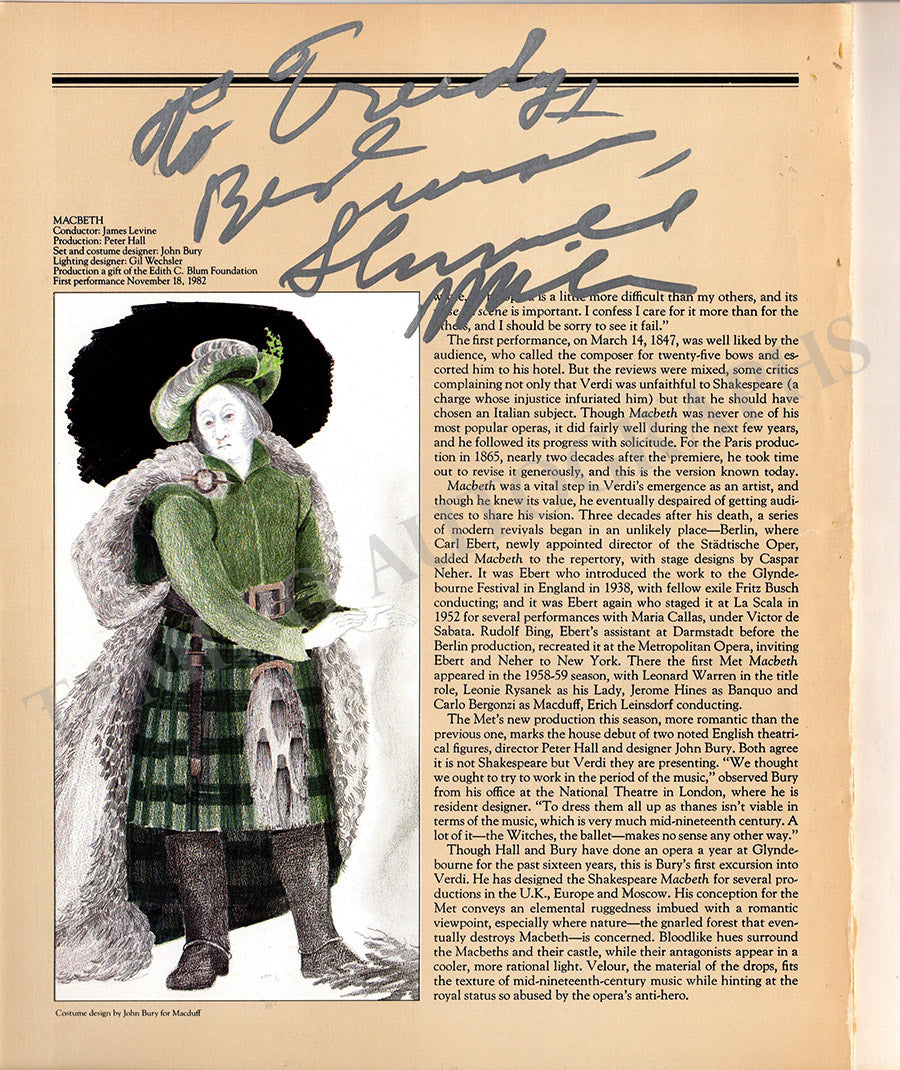 To Trudy,
Best
Sherrill
Milnes
MACBETH
Conductor: James Levine
Production: Peter Hall
Set and costume designer: John Bury
Lighting designer: Gil Wechsler
Production a gift of the Edith C. Blum Foundation
First performance November 18, 1982
is a little more difficult than my others, and its
scene is important. I confess I care for it more than for the
and I should be sorry to see it fail.”
The first performance, on March 14, 1847, was well liked by the
audience, who called the composer for twenty-five bows and es-
corted him to his hotel. But the reviews were mixed, some critics
complaining not only that Verdi was unfaithful to Shakespeare (a
charge whose injustice infuriated him) but that he should have
chosen an Italian subject. Though Macbeth was never one of his
most popular operas, it did fairly well during the next few years,
and he followed its progress with solicitude. For the Paris produc-
tion in 1865, nearly two decades after the premiere, he took time
out to revise it generously, and this is the version known today.
Macbeth was a vital step in Verdi’s emergence as an artist, and
though he knew its value, he eventually despaired of getting audi-
ences to share his vision. Three decades after his death, a series
of modern revivals began in an unlikely place—Berlin, where
Carl Ebert, newly appointed director of the Städtische Oper,
added Macbeth to the repertory, with stage designs by Caspar
Neher. It was Ebert who introduced the work to the Glynde-
bourne Festival in England in 1938, with fellow exile Fritz Busch
conducting; and it was Ebert again who staged it at La Scala in
1952 for several performances with Maria Callas, under Victor de
Sabata. Rudolf Bing, Ebert’s assistant at Darmstadt before the
Berlin production, recreated it at the Metropolitan Opera, inviting
Ebert and Neher to New York. There the first Met Macbeth
appeared in the 1958-59 season, with Leonard Warren in the title
role, Leonie Rysanek as his Lady, Jerome Hines as Banquo and
Carlo Bergonzi as Macduff, Erich Leinsdorf conducting.
The Met’s new production this season, more romantic than the
previous one, marks the house debut of two noted English theatri-
cal figures, director Peter Hall and designer John Bury. Both agree
it is not Shakespeare but Verdi they are presenting. “We thought
we ought to try to work in the period of the music,” observed Bury
from his office at the National Theatre in London, where he is
resident designer. “To dress them all up as thanes isn’t viable in
terms of the music, which is very much mid-nineteenth century. A
lot of it—the Witches, the ballet—makes no sense any other way.”
Though Hall and Bury have done an opera a year at Glynde-
bourne for the past sixteen years, this is Bury’s first excursion into
Verdi. He has designed the Shakespeare Macbeth for several pro-
ductions in the U.K., Europe and Moscow. His conception for the
Met conveys an elemental ruggedness imbued with a romantic
viewpoint, especially where nature—the gnarled forest that even-
tually destroys Macbeth—is concerned. Bloodlike hues surround
the Macbeths and their castle, while their antagonists appear in a
cooler, more rational light. Velour, the material of the drops, fits
the texture of mid-nineteenth-century music while hinting at the
royal status so abused by the opera’s anti-hero.
Costume design by John Bury for Macduff
TAMINO AUTOGRAPHS